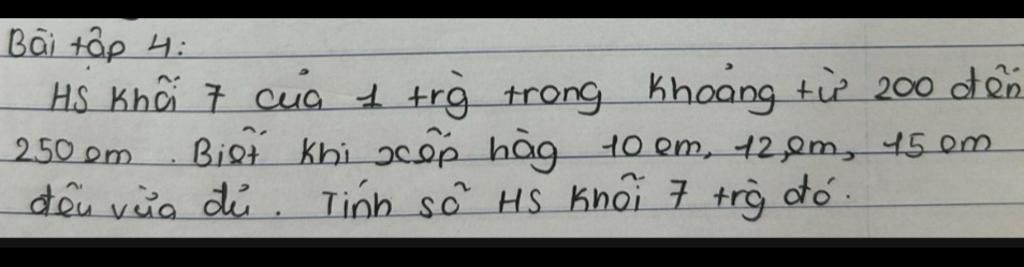 Bài tập 4:
HS khối 7 của 1 trg̀ trong khoảng từ 200 đến
250 em. Biết khi xếp hàg 10 em, 12 em, 15 em
đều vừa đủ. Tính số HS khối 7 trg̀ đó.